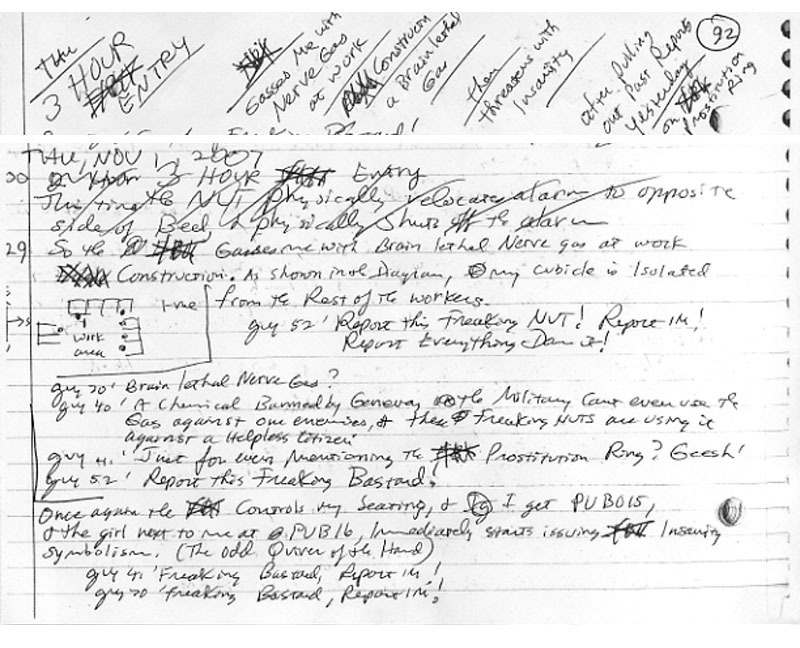 THU
3 HOUR
ENTRY
Gasses Me with
Nerve Gas
at work
Construction
a Brain lethal
Gas
Then
threatens with
Insanity
after pulling
out Past Reports
yesterday
on
Prostitution
Ring
92
THU, NOV 1, 2007
3 Hour Entry
This time the NUT physically relocates alarm to opposite
side of Bed & physically shuts off the alarm
29 So the Gasses me with Brain lethal Nerve gas at work
Construction. As shown in the Diagram, my cubicle is Isolated
from the Rest of the workers.
work
area
guy 52' Report this Freaking NUT! Report IM!
Report Everything Damit!
guy 20' Brain lethal Nerve Gas?
guy 40' A Chemical Banned by Geneva, the Military Cant even use the
Gas against our enemies, & these Freaking NUTS are using it
against a Helpless Citizen!
guy 41' Just for even Mentioning the Prostitution Ring? Geesh!
guy 52' Report this Freaking Bastard!
Once again the Controls my Seating, & I get PUB015,
& the girl next to me at PUB16, Immediately starts issuing Insanity
symbolism. (The odd Quiver of the Hand)
guy 41' Freaking Bastard, Report IM!
guy 20' Freaking Bastard, Report IM!